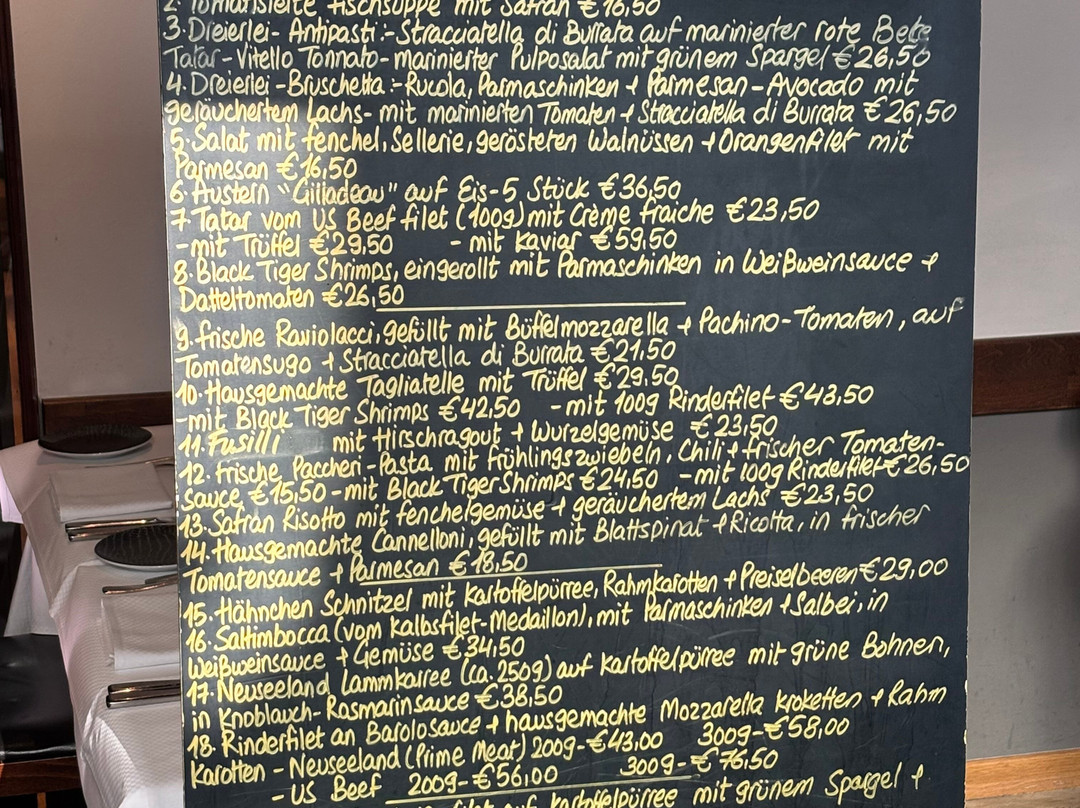 2. Tomatisierte Fischsuppe mit Safran €16,50
3. Dreierlei- Antipasti:- Stracciatella di Burrata auf marinierter rote Bete
Tatar - Vitello Tonnato- marinierter Pulposalat mit grünem Spargel €26,50
4. Dreierlei -Bruschetta:- Rucola, Parmaschinken + Parmesan - Avocado mit
geräuchertem Lachs- mit marinierten Tomaten + Stracciatella di Burrata €26,50
5. Salat mit Fenchel, Sellerie, gerösteten Walnüssen + Orangenfilet mit
Parmesan €16,50
6. Austern "Gilladeau" auf Eis-5 Stück €36,50
7 Tatar vom US Beef filet (100g) mit Crème fraiche €23,50
-mit Trüffel €29,50 - mit Kaviar €59,50
8. Black Tiger Shrimps, eingerollt mit Parmaschinken in Weißweinsauce +
Datteltomaten €26,50
9. frische Raviolacci, gefüllt mit Büffelmozzarella + Pachino-Tomaten, auf
Tomatensugo + Stracciatella di Burrata €21,50
10. Hausgemachte Tagliatelle mit Trüffel €29,50
-mit Black Tiger Shrimps €42,50 - mit 100g Rinderfilet €43,50
11. Fusilli mit Hirschragout + Wurzelgemüse €23,50
12. frische Paccheri-Pasta mit frühlingszwiebeln, Chili + frischer Tomaten-
sauce €15,50 - mit Black Tiger Shrimps €24,50 - mit 100g Rinderfilet €26,50
13. Safran Risotto mit fenchelgemüse + geräuchertem Lachs €23,50
14. Hausgemachte Cannelloni, gefüllt mit Blattspinat + Ricotta, in frischer
Tomatensauce + Parmesan €18,50
15. Hähnchen Schnitzel mit Kartoffelpürree, Rahmkarotten + Preiselbeeren €29,00
16. Saltimbocca (vom Kalbsfilet-Medaillon), mit Parmaschinken + Salbei, in
Weißweinsauce + Gemüse €34,50
17. Neuseeland Lammkarree (ca. 250g) auf Kartoffelpürree mit grüne Bohnen,
in Knoblauch- Rosmarinsauce €38,50
18. Rinderfilet an Barolosauce + hausgemachte Mozzarella Kroketten + Rahm
Karotten - Neuseeland (Prime Meat) 200g-€43,00 300g-€58,00
- US Beef 200g-€56,00 300g-€76,50
auf Kartoffelpürree mit grünem Spargel +